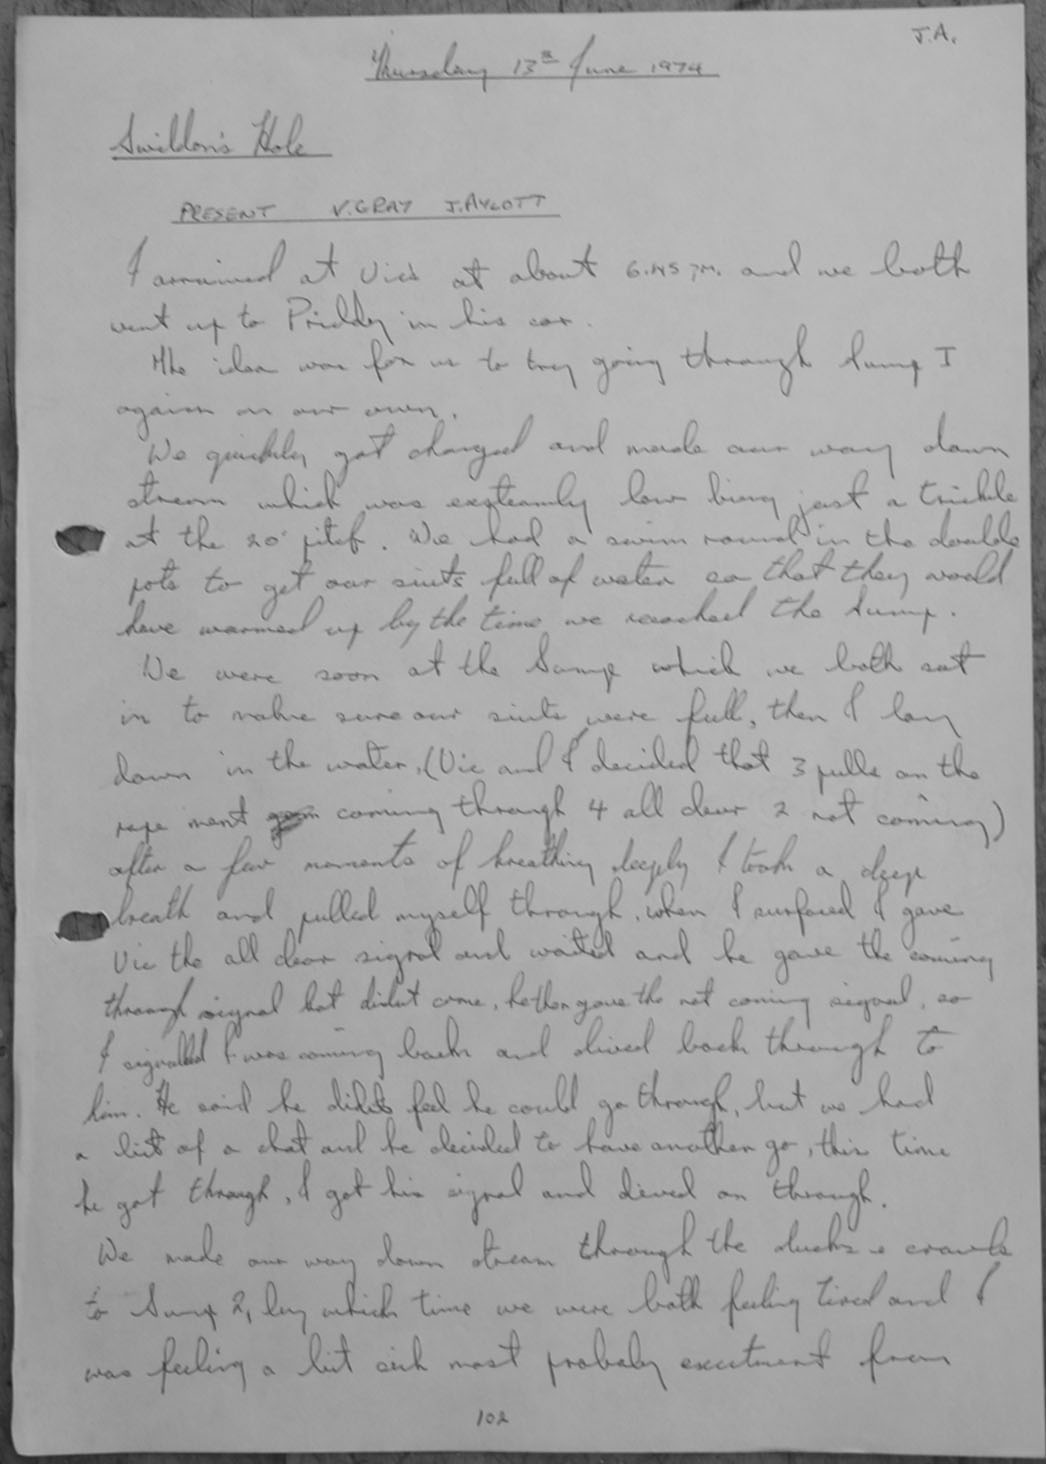 J.A.
Thursday 13th June 1974
Swildon's Hole
PRESENT V.GRAY J.AYLOTT
I arrained at Vic's at about 6.45 PM. and we both
went up to Priddy in his car.
The idea was for us to try going through Sump I
again on our own.
We quickly got changed and made our way down
stream which was exsteamly low being just a trickle
at the 20' pitch. We had a swim round in the double
pots to get our siuts full of water so that they would
have warmed up by the time we reached the Sump.
We were soon at the Sump which we both sat
in to make sure our siuts were full, then I lay
down in the water, (Vic and I decided that 3 pulls on the
rope ment coming through 4 all clear 2 not coming)
after a few moments of breathing deeply I took a deep
breath and pulled myself through, when I surfaced I gave
Vic the all clear signal and waited and he gave the coming
through signal but didnt come, he then gave the not coming signal, so
I signalled I was coming back and dived back through to
him. He said he didnt feel he could go through, but we had
a bit of a chat and he decided to have another go, this time
he got through, I got his signal and dived on through.
We made our way down stream through the ducks & crawls
to Sump 2, by which time we were both feeling tired and I
was feeling a bit sick most probaly excitment from
102